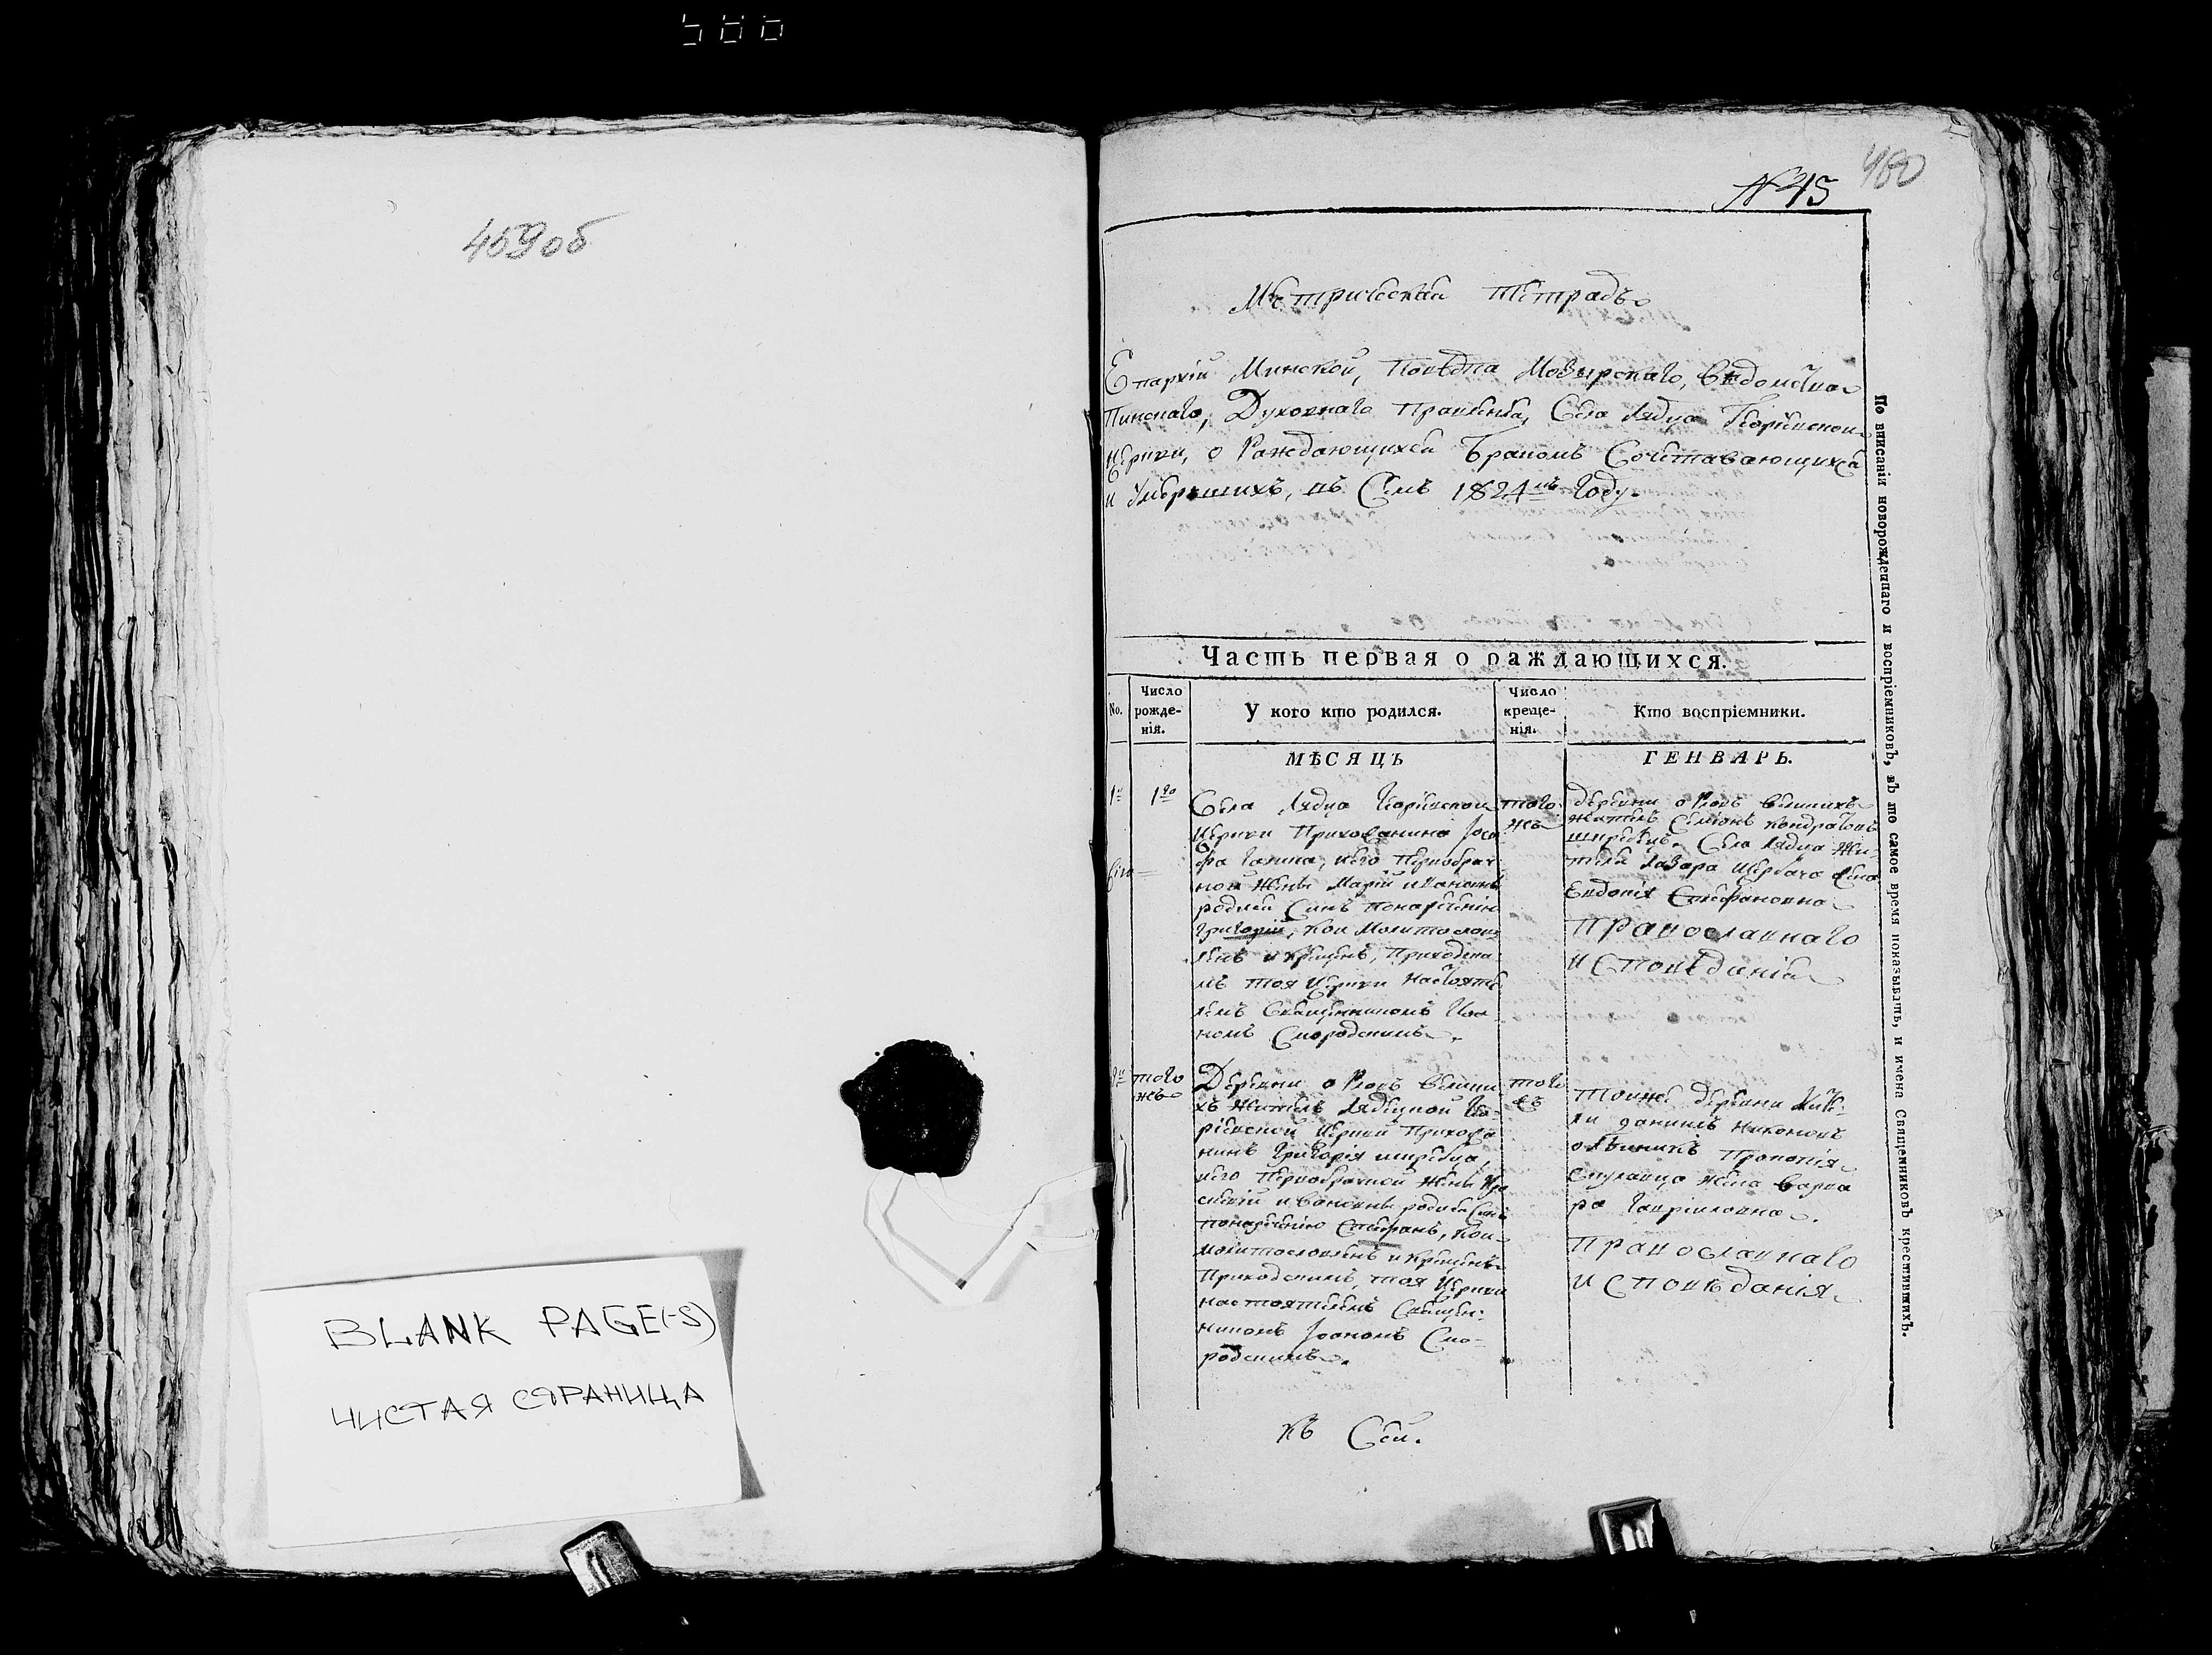 459об
BLANK PAGE(-S)
ЧИСТАЯ СТРАНИЦА
460
№ 45
Метрическая тетрадь
Епархіи Минской, Повѣта Мозырскаго, Вѣдомства
Пинскаго, Духовнаго Правленія, Села Лядца Георгіевской
Церкви, о Раждающихся Бракомъ Сочетавающихся
и Умершихъ, въ Семъ 1824мъ Году.
Часть первая о раждающихся.
No.
Число рожденія.
У кого кто родился.
Число крещенія.
Кто воспріемники.
МѢСЯЦЪ ГЕНВАРЬ.
1й
1го
Села Лядца Георгіевской
Церкви Прихожанина Іоси
фа, его Первобрач
ной Жены Маріи Ивановны
родился Сынъ
Григорій, кои Молитвослов
ленъ и Крещенъ, Приходски
мъ тоя Церкви Настояте
лемъ Священникомъ Іоа
номъ Смородскимъ.
того
жъ
деревни
житель Семіонъ
Села Лядца Жи-
теля Лазара жена
Евдокія Стефановна
Православнаго
исповѣданія
2й
того
жъ
Деревни
хъ Житель Лядецкой Гео-
ріевской Церкви Прихожа
нинъ Григорія
его Первобрачной Жены
Ивановны родился Сынъ
Стефанъ, кои
молитвословленъ и Крещенъ
Приходскимъ, тоя Церкви
настоятелемъ Священ-
никомъ Іоаномъ Смо-
родскимъ.
того
жъ
тоиже деревни Жите-
ли Даниилъ Никоновъ
Прокопія
жена Варва
ра Гавриловна.
Православнаго
исповѣданія
къ Сей.
По вписаніи новорожденнаго и воспріемниковъ, въ то самое время показывать, и имена Священниковъ крестившихъ.